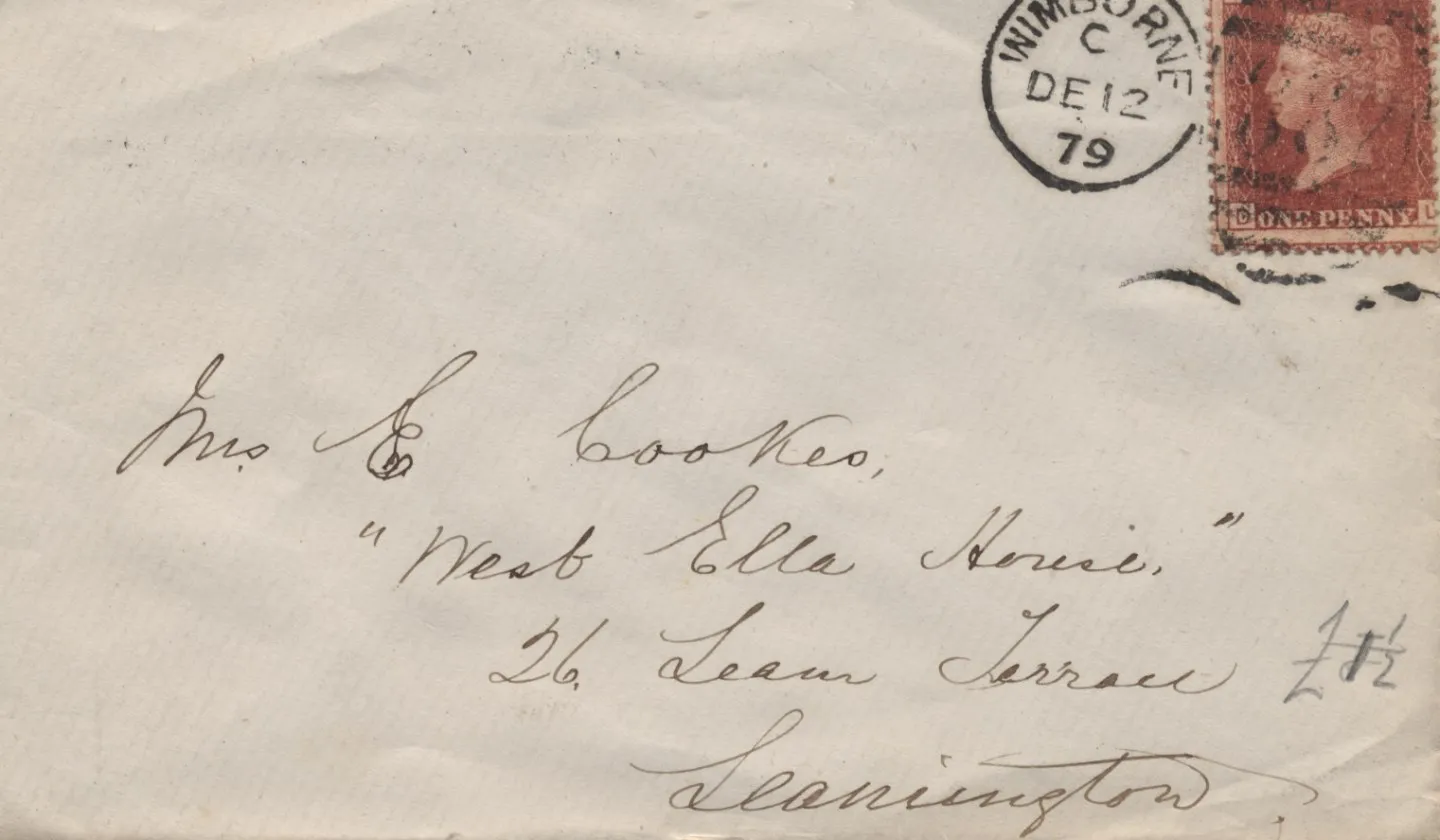 WIMBORNE
C
DE 12
79
ONE PENNY
Mrs. E Cookes,
"West Ella House."
26. Leam Terrace
Leamington
£1½